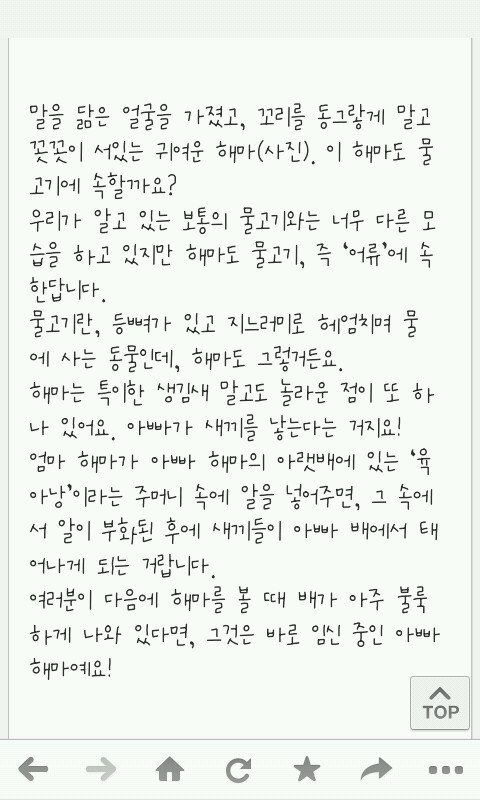 말을 닮은 얼굴을 가졌고, 꼬리를 동그랗게 말고
꼿꼿이 서있는 귀여운 해마(사진). 이 해마도 물
고기에 속할까요?
우리가 알고 있는 보통의 물고기와는 너무 다른 모
습을 하고 있지만 해마도 물고기, 즉 ‘어류’에 속
한답니다.
물고기란, 등뼈가 있고 지느러미로 헤엄치며 물
에 사는 동물인데, 해마도 그렇거든요.
해마는 특이한 생김새 말고도 놀라운 점이 또 하
나 있어요. 아빠가 새끼를 낳는다는 거지요!
엄마 해마가 아빠 해마의 아랫배에 있는 ‘육
아낭’이라는 주머니 속에 알을 넣어주면, 그 속에
서 알이 부화된 후에 새끼들이 아빠 배에서 태
어나게 되는 거랍니다.
여러분이 다음에 해마를 볼 때 배가 아주 불룩
하게 나와 있다면, 그것은 바로 임신 중인 아빠
해마예요!
TOP